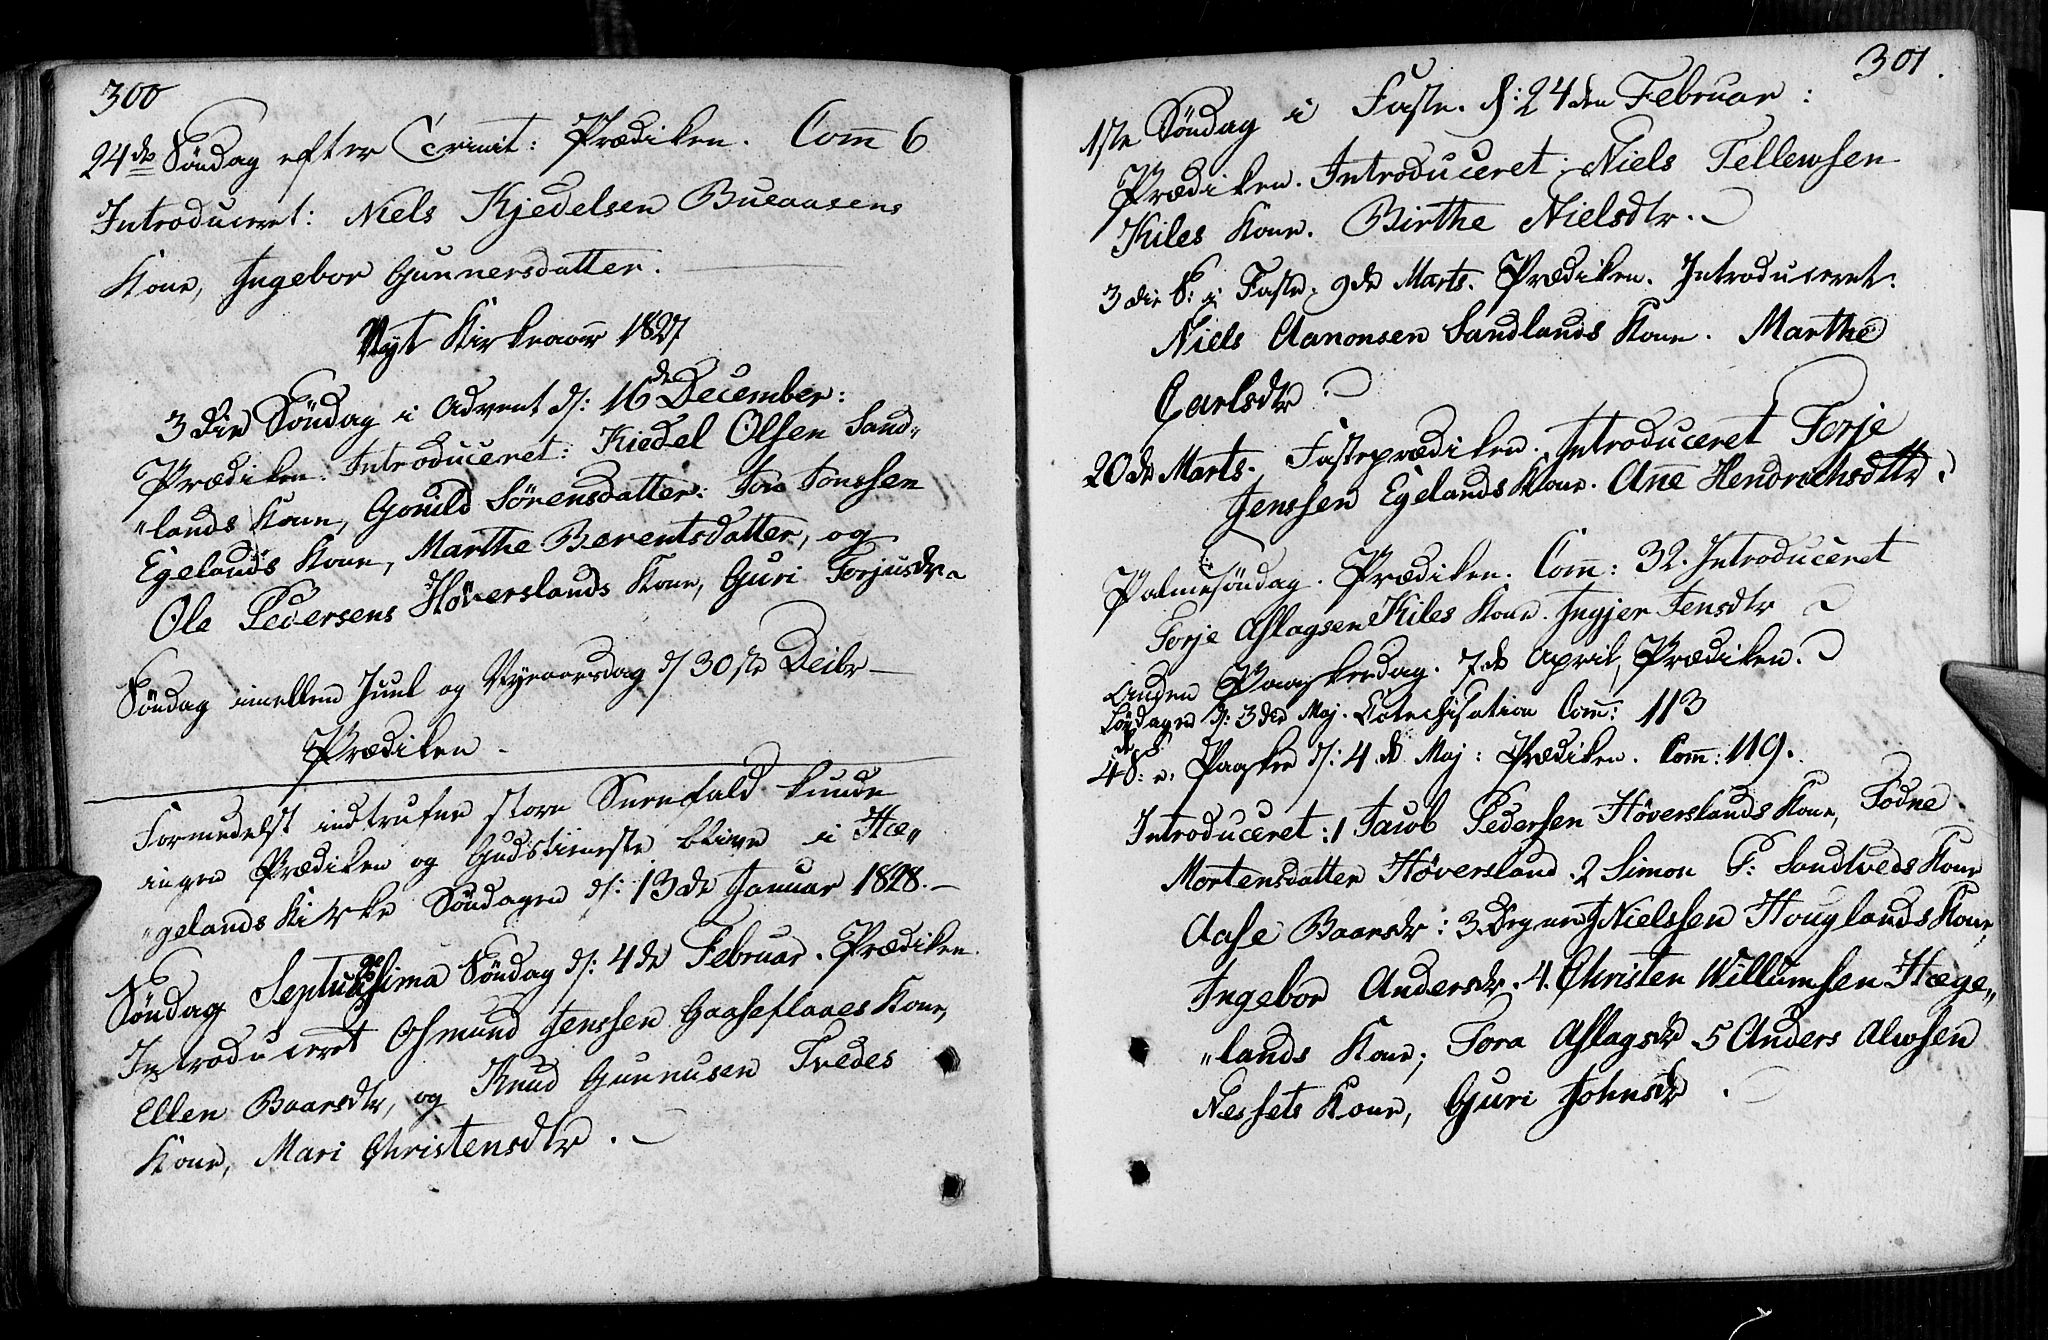 300
24de Søndag efter Trinit: Prædiken. Com 6
Introduceret: Niels Kjedelsen Bueaasens
Kone, Ingebor Gunnersdatter.
Nyt Kirkeaar 1827
3die Søndag i Advent d: 16de December:
Prædiken. Introduceret: Kiedel Olsen Sand„
„lands Kone, Gonild Sørensdatter: Jon Jonssen
Egelands Kone, Marthe Berentsdatter, og
Ole Pedersens Höverslands Kone, Guri Torjusdr
Søndag imellem Juul og Nyeaarsdag d 30ste Deibr
Prædiken
Formedelst indtrufne store Sneefald kunde
ingen Prædiken og Gudstieneste blive i Hæ„
„gelands Kirke Søndagen d: 13de Januar 1828.
Søndag Septuagesima Søndag d: 4de Februar. Prædiken.
Introduceret Osmund Jenssen Gaaseflaaes Kone,
Ellen Baarsdtr, og Knud Gunnusen Tvedes
Kone, Mari Christensdtr.
301.
1ste Søndag i Faste. d: 24den Februar:
Prædiken. Introduceret: Niels Tellewsen
Kiles Kone. Birthe Nielsdtr.
3die S: i Faste. 9de Marts. Prædiken. Introduceret:
Niels Aanonsen Sandlands Kone. Marthe
Carlsdtr.
20de Marts. Fasteprædiken. Introduceret Torje
Jenssen Egelands Kone. Ane Hendrichsdttr
Palmesøndag. Prædiken. Com: 32. Introduceret
Torje Aslagsen Kiles Kone. Ingjer Jensdtr
Anden Paaskedag. 7de April, Prædiken.
Løvdagen d: 3die Maj. Catechisation Com: 113
4de S: e. Paaske d: 4de Maj: Prædiken. Com: 119.
Introduceret: 1 Jacob Pedersen Höverslands Kone, Todne
Mortensdatter Höversland. 2 Simon P: Sandveds Kone
Aase Baarsdr: 3. Nielssen Houglands Kone,
Ingebor Andersdr. 4. Christen Willumsen Hæge„
„lands Kone; Tora Aslagsdr 5 Anders Alwsen
Nessets Kone, Guri Johnsdr.